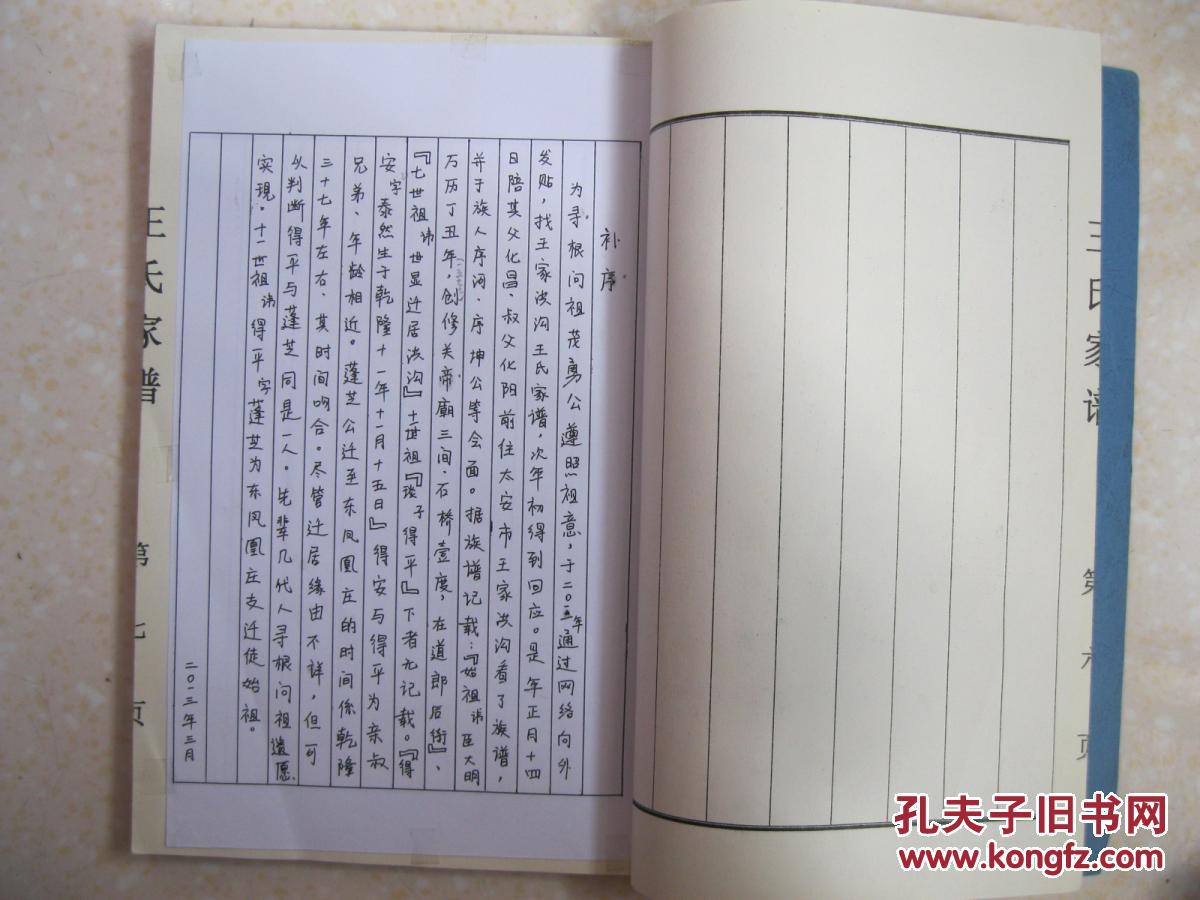 补序
为寻根问祖茂勇公遵照祖意，于二〇 年通过网络向外
发贴，找王家汝沟王氏家谱，次年初得到回应。是年正月十四
日陪其父化昌、叔父化阳前往太安市王家汝沟看了族谱，
并于族人序河、序坤公等会面。据族谱记载：『始祖讳 大明
万历丁丑年，创修关帝庙三间、石桥壹度，在道郎后街』、
『七世祖讳世显迁居汝沟』十一世祖『琰子得平』下者尢记载。『得
安字泰然生于乾隆十一年十一月十五日』得安与得平为亲叔
兄弟、年龄相近。蓬芝公迁至东凤凰庄的时间係乾隆
三十七年左右、其时间吻合。尽管迁居缘由不详，但可
以判断得平与蓬芝同是一人。先辈几代人寻根问祖遗愿
实现。十一世祖讳得平字蓬芝为东凤凰庄支迁徒始祖。
二〇一三年三月
王氏家谱
第七页
王氏家谱
第六页
孔夫子旧书网
www.kongfz.com